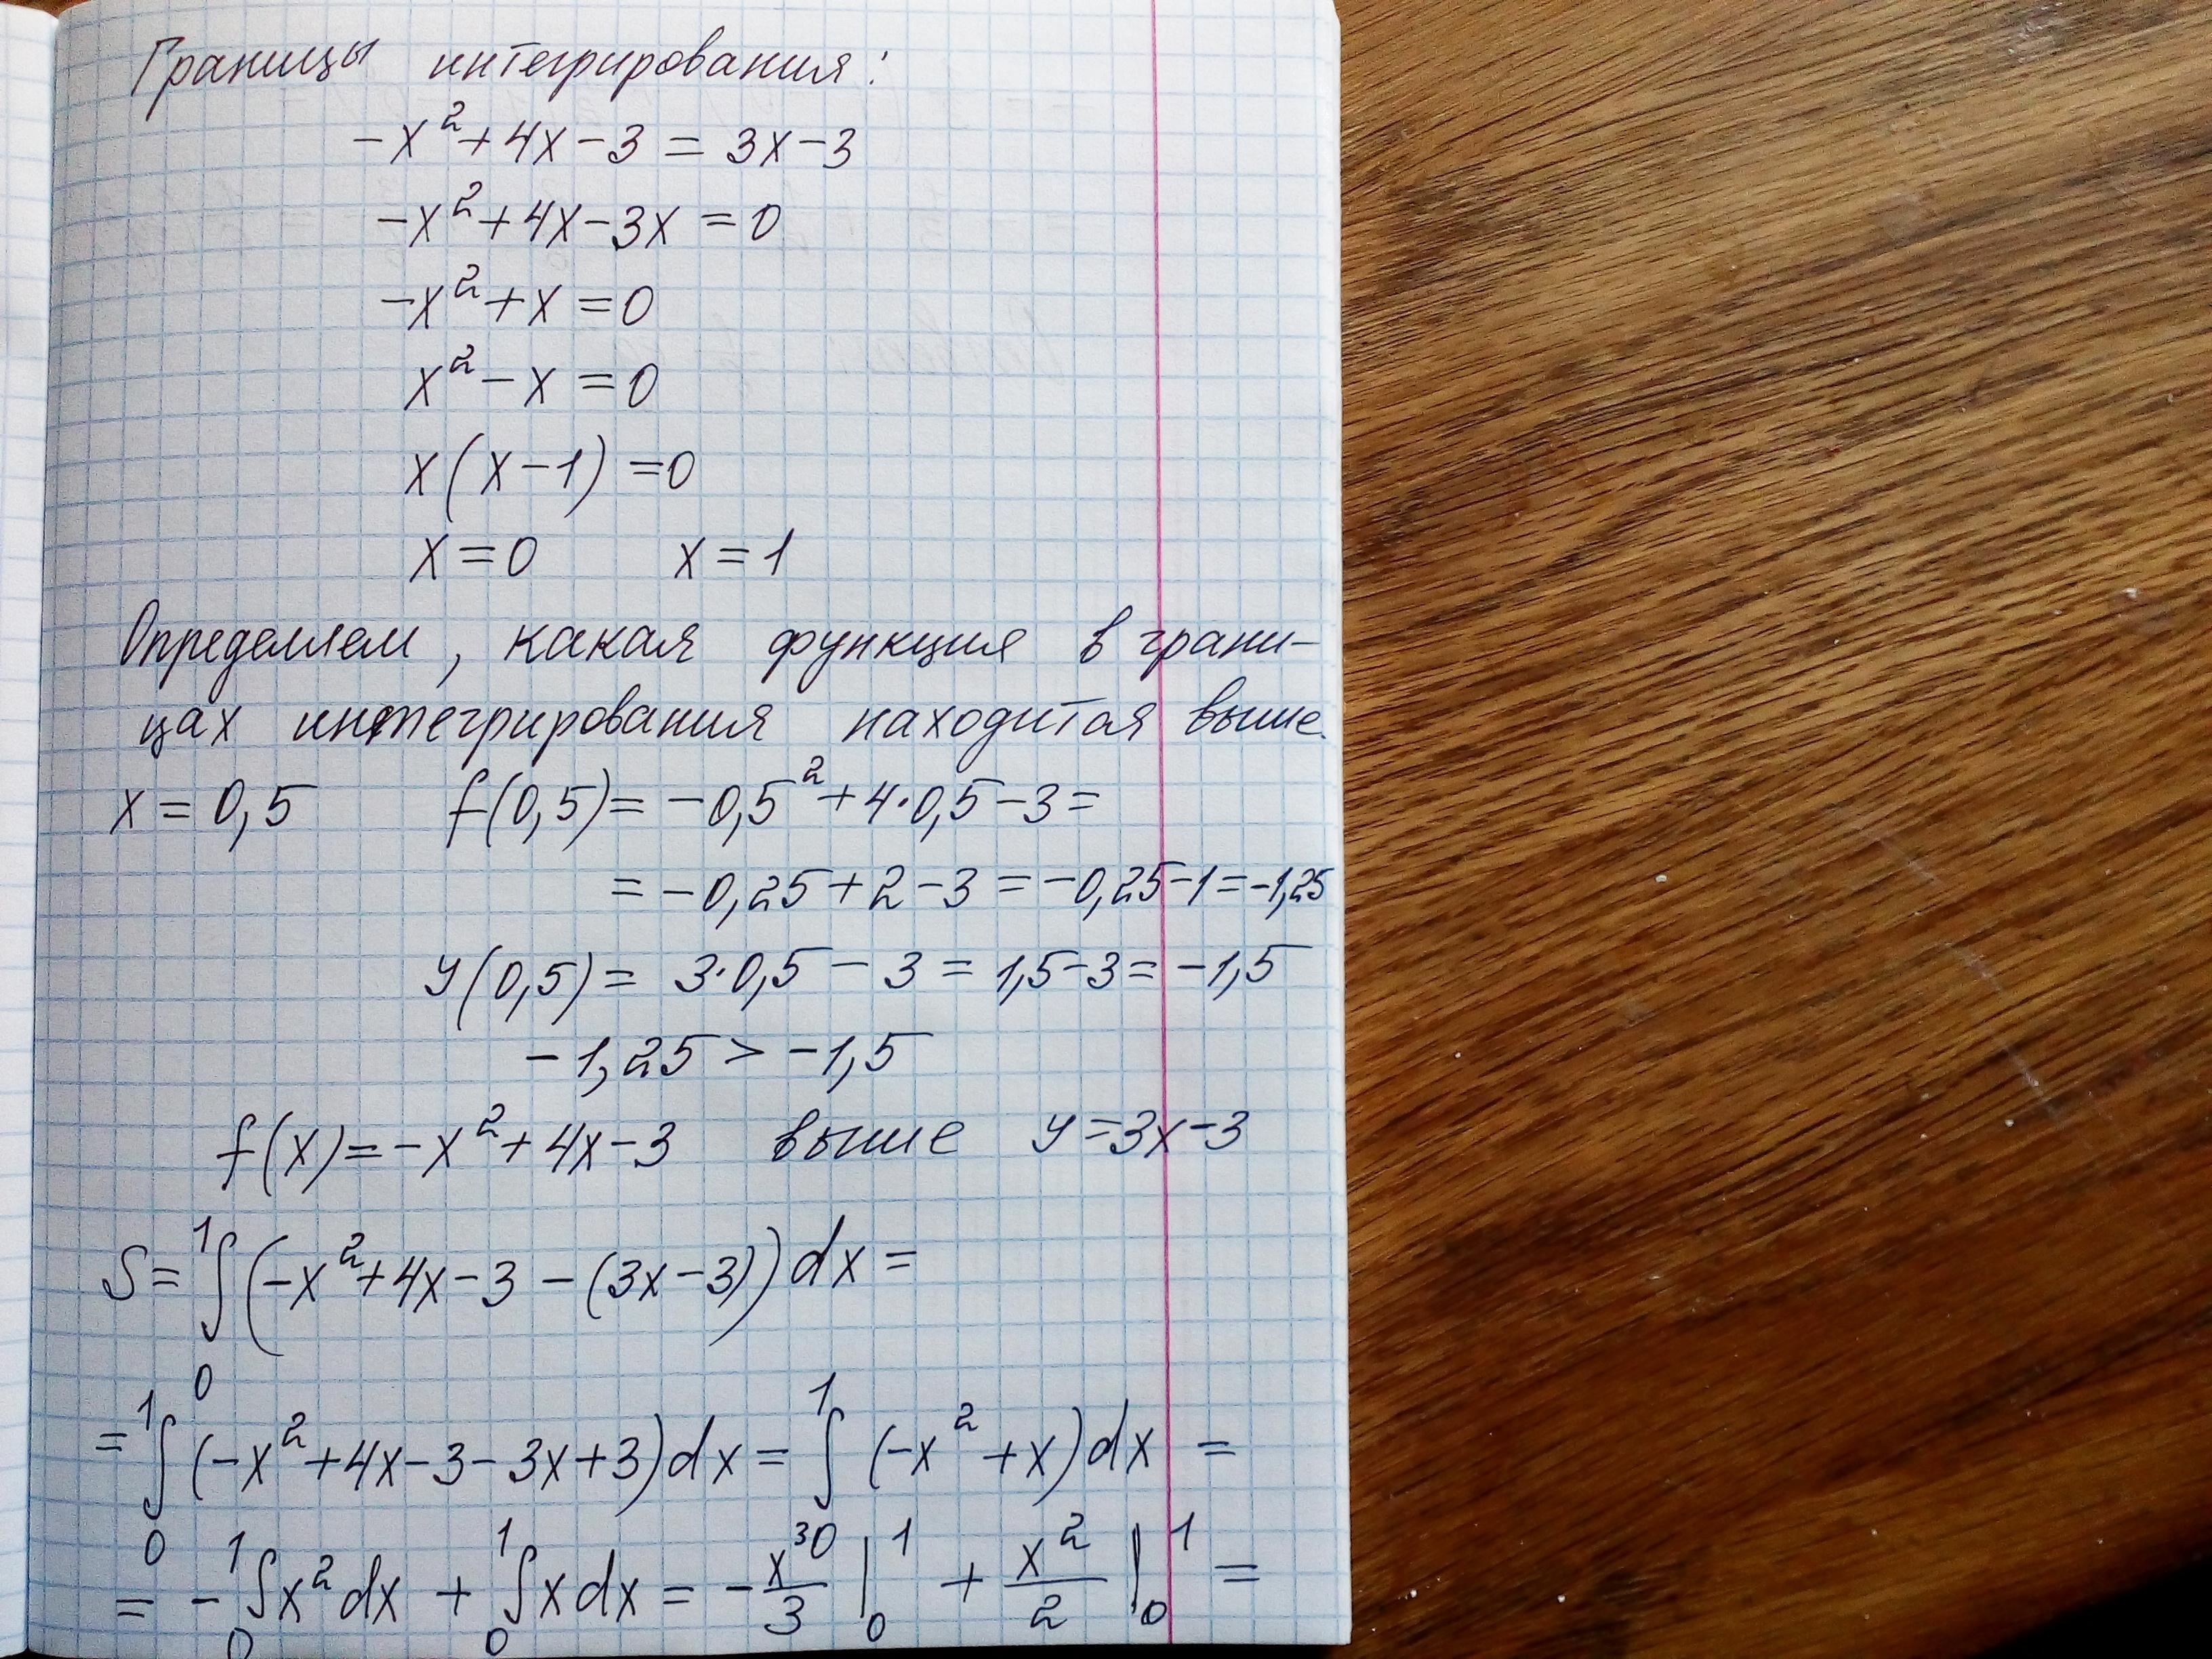 Границы интегрирования:
-x²+4x-3=3x-3
-x²+4x-3x=0
-x²+x=0
x²-x=0
x(x-1)=0
x=0 x=1
Определяем, какая функция в грани-
цах интегрирования находится выше.
x=0,5 f(0,5)=-0,5²+4·0,5-3=
=-0,25+2-3=-0,25-1=-1,25
y(0,5)=3·0,5-3=1,5-3=-1,5
-1,25>-1,5
f(x)=-x²+4x-3 выше y=3x-3
S=∫₀¹(-x²+4x-3-(3x-3))dx=
=∫₀¹(-x²+4x-3-3x+3)dx=∫₀¹(-x²+x)dx=
=-∫₀¹x²dx+∫₀¹xdx=-x³/3|₀¹+x²/2|₀¹=